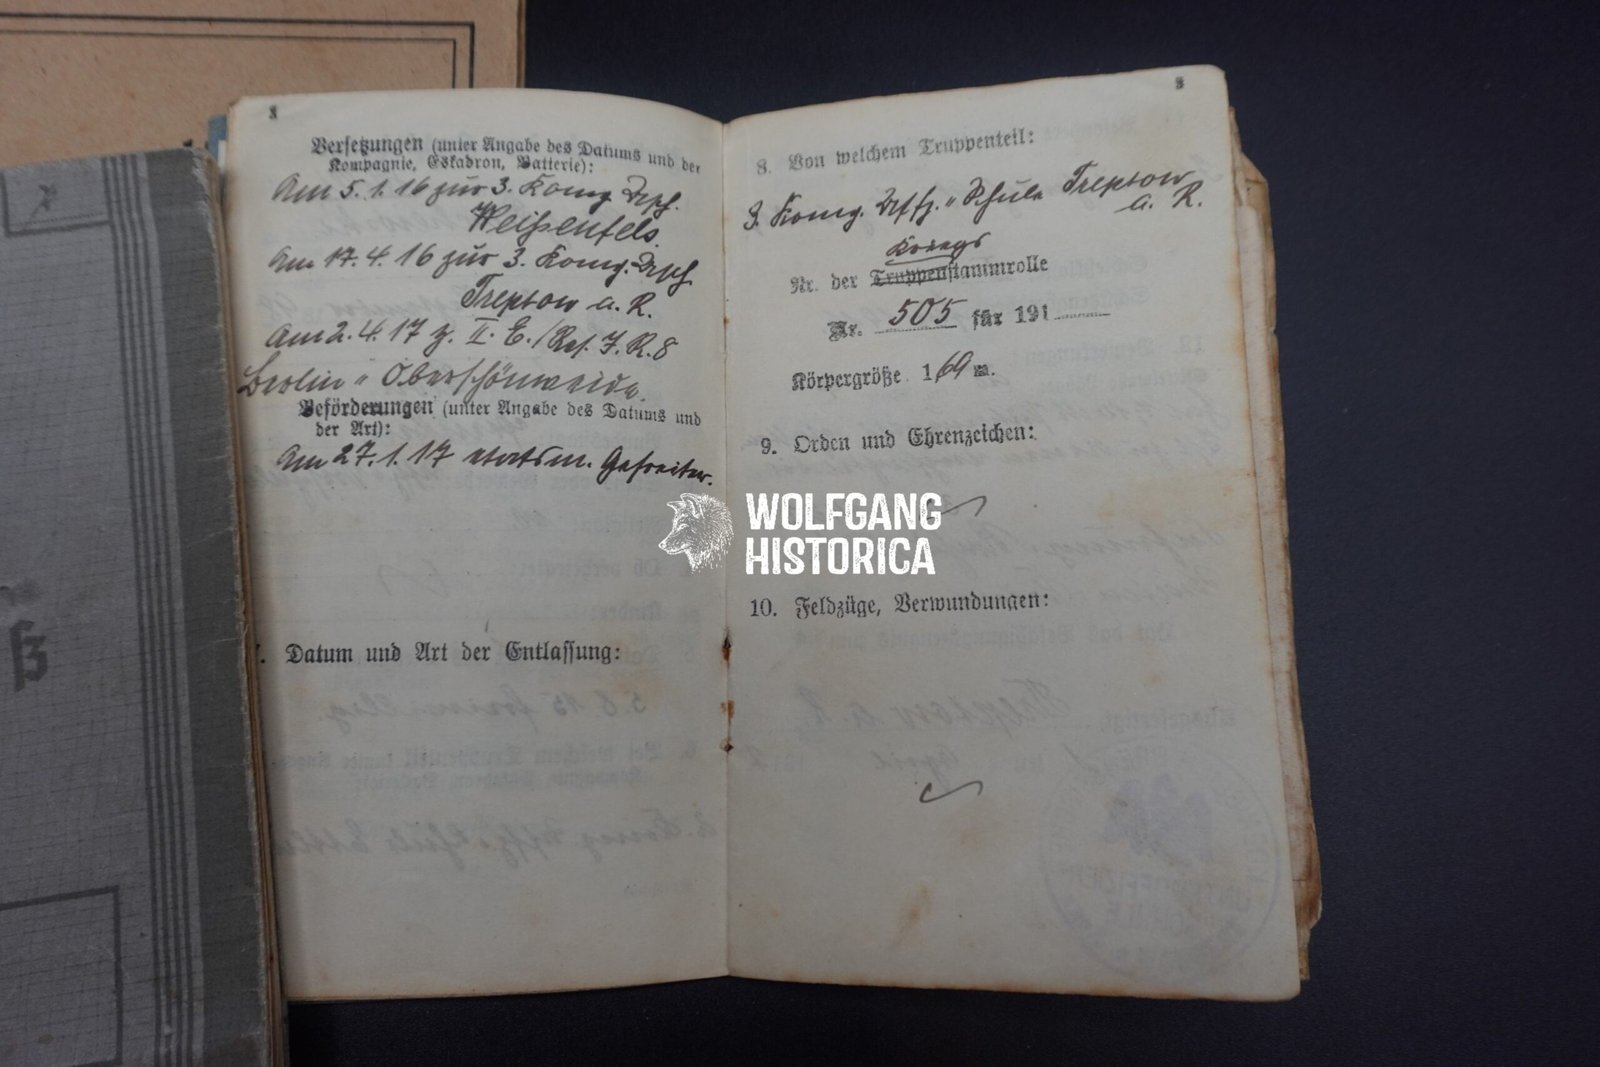 3
Versetzungen (unter Angabe des Datums und der
Kompagnie, Eskadron, Batterie):
Am 5.1.16 zur 3. Komp.
Weißenfels.
Am 17.4.16 zur 3. Komp.
Treptow a. R.
Am 2.4.17 z. II. E./Res. J. R. 8
Berlin-Oberschöneweide.
Beförderungen (unter Angabe des Datums und
der Art):
Am 27.1.17 etatsm. Gefreiter.
Datum und Art der Entlassung:
8. Von welchem Truppenteil:
3. Komp. Uffz.-Schule Treptow
a. R.
Kriegs
Nr. der Truppenstammrolle
Nr. 505 für 191
Körpergröße 1,69 m.
9. Orden und Ehrenzeichen:
10. Feldzüge, Verwundungen:
WOLFGANG
HISTORICA
ß